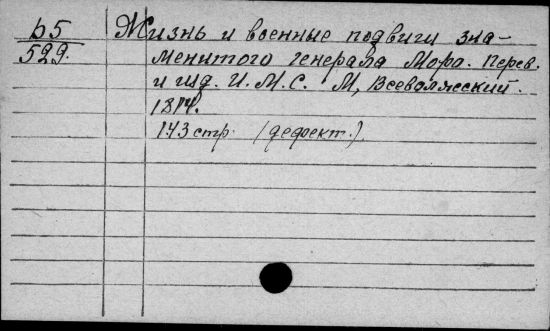 b5 Жизнь и военные подвиги зна-
529. менитого генерала Мора. Перев.
и изд. И. М. С. М, Всеволжский.
1814.
143 стр. (дефект.)